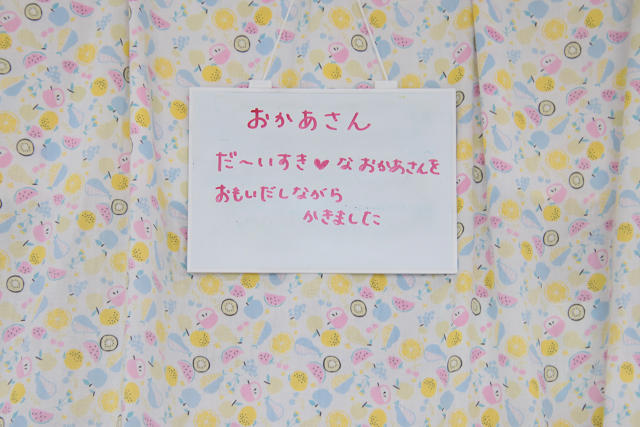 おかあさん
だ〜いすき♥なおかあさんを
おもいだしながら
かきました